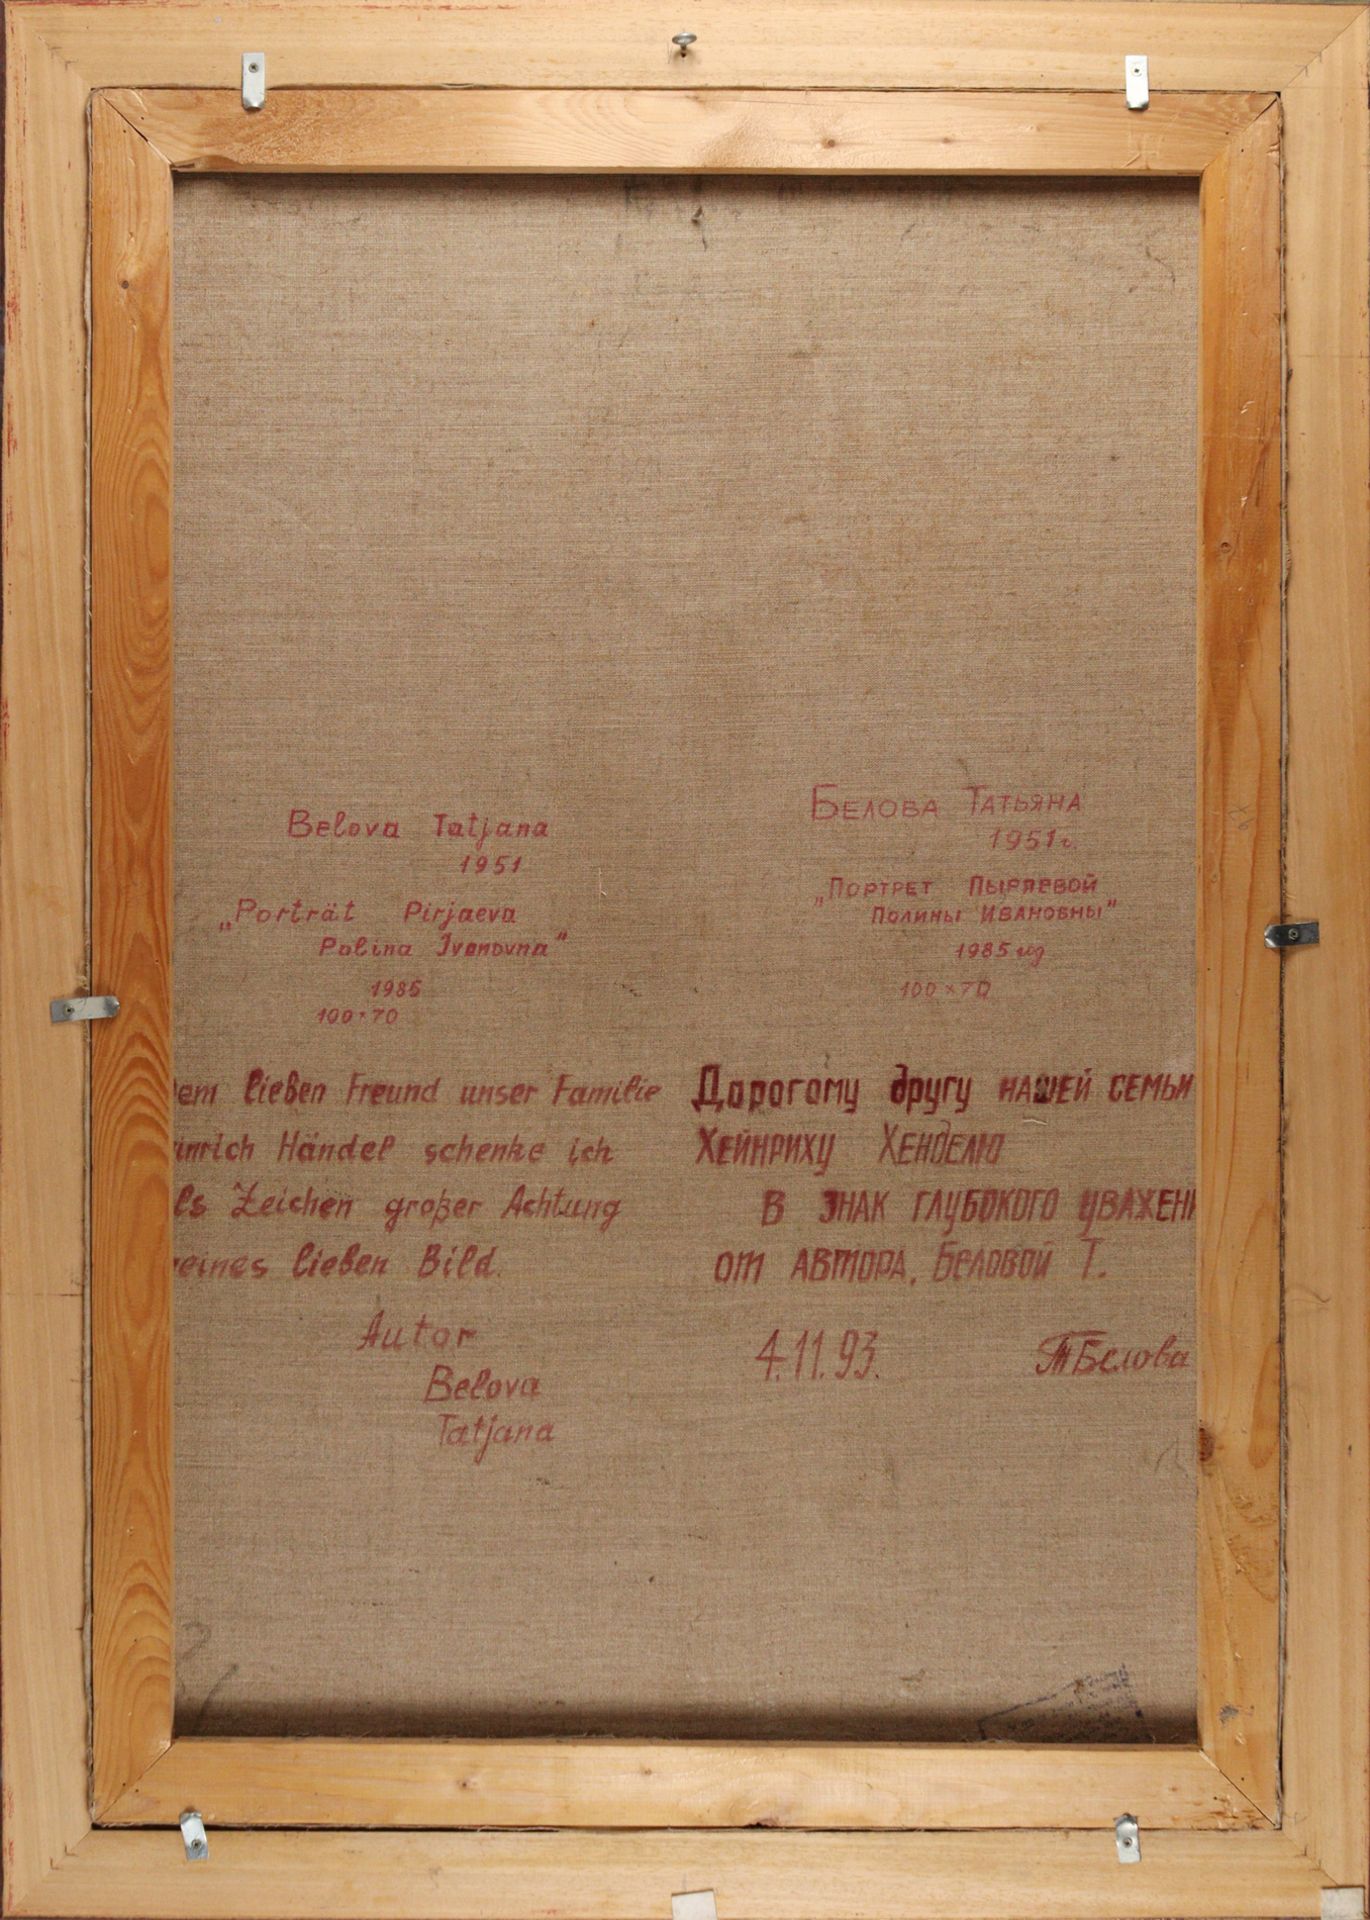 Belova Tatjana
1951
„Porträt Pirjaeva
Polina Ivanovna"
1985
100×70
em lieben Freund unser Familie
inrich Händel schenke ich
ls Zeichen großer Achtung
eines lieben Bild.
Autor
Belova
Tatjana
Белова Татьяна
1951г.
„Портрет Пыряевой
Полины Ивановны"
1985 год
100×70
Дорогому другу нашей семьи
Хейнриху Хенделю
в знак глубокого уважени
от автора, Беловой Т.
4.11.93.
ТБелова